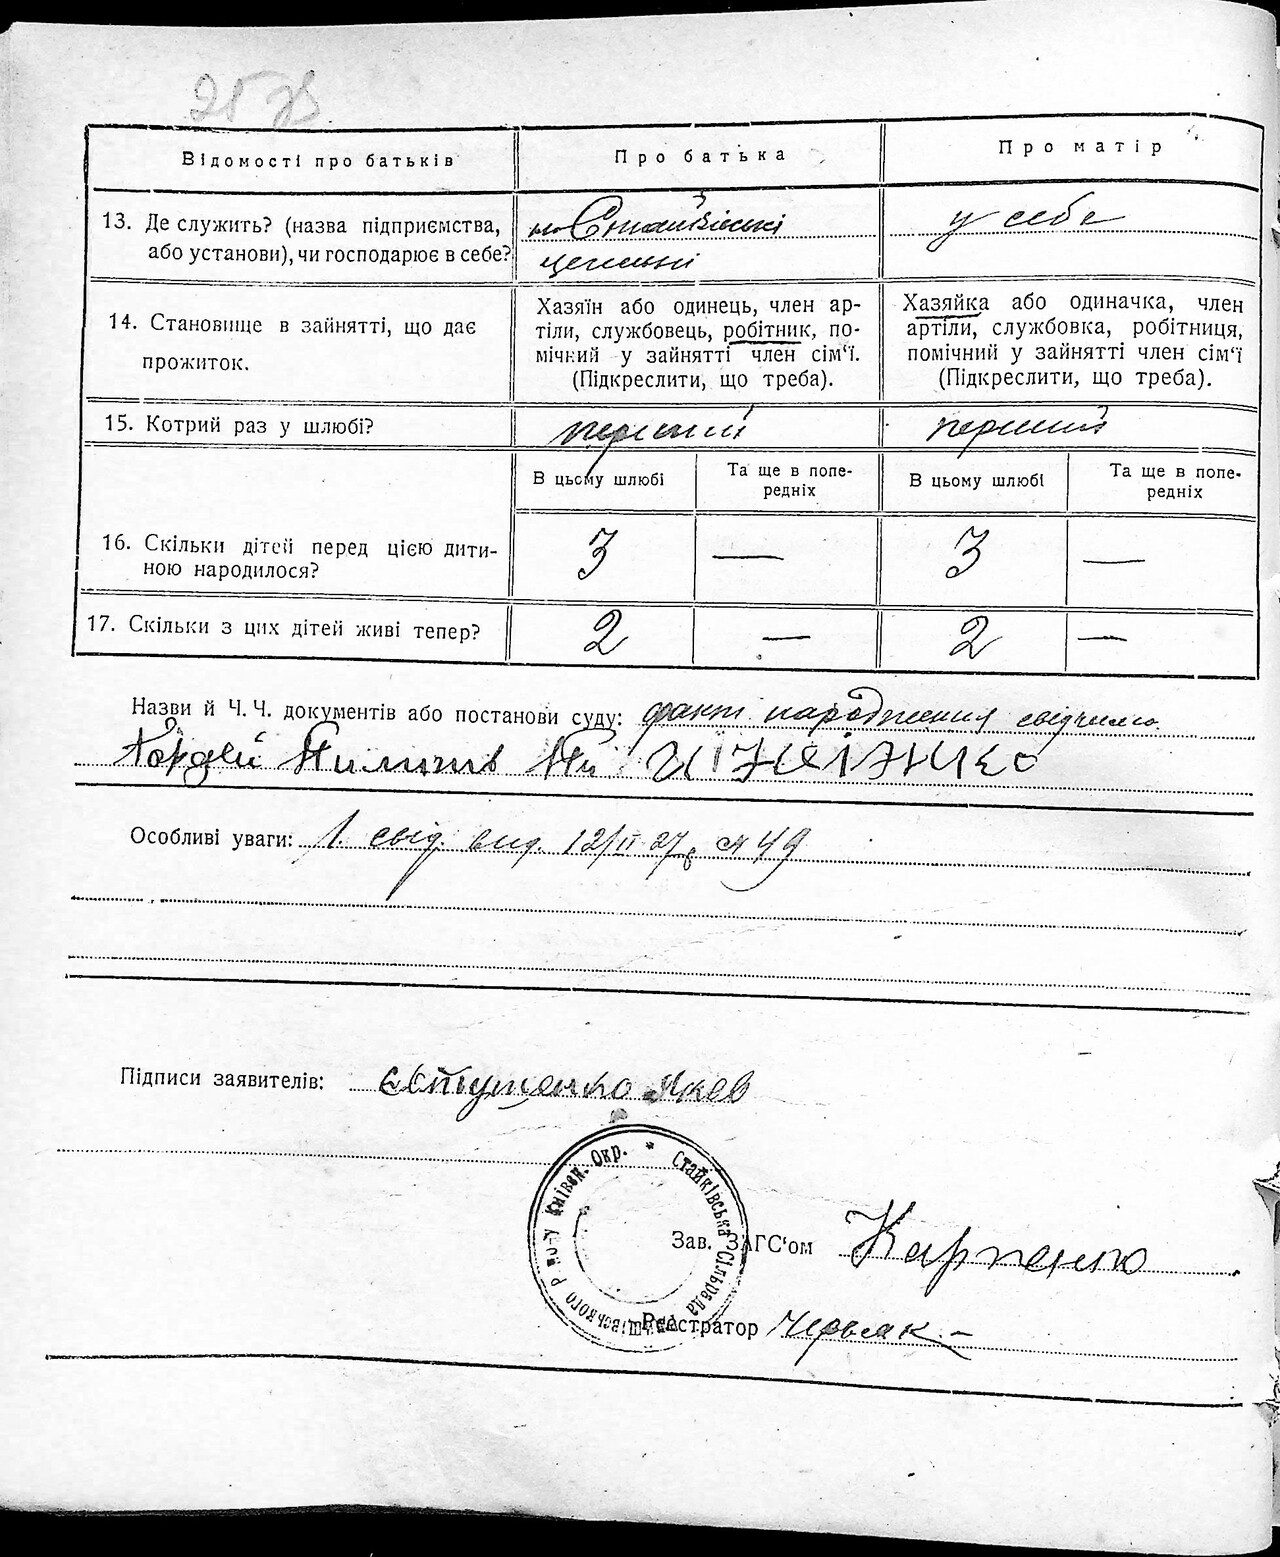 Відомості про батьків
Про батька
Про матір
13. Де служить? (назва підприємства,
або установи), чи господарює в себе?
на Стайківські
цегельні
у себе
14. Становище в зайнятті, що дає
прожиток.
Хазяїн або одинець, член ар-
тіли, службовець, робітник, по-
мічний у зайнятті член сім'ї.
(Підкреслити, що треба).
Хазяйка або одиначка, член
артіли, службовка, робітниця,
помічний у зайнятті член сім'ї
(Підкреслити, що треба).
15. Котрий раз у шлюбі?
перший
перший
В цьому шлюбі
Та ще в попе-
редніх
В цьому шлюбі
Та ще в попе-
редніх
16. Скільки дітей перед цією дити-
ною народилося?
3
—
3
—
17. Скільки з цих дітей живі тепер?
2
—
2
—
Назви й Ч. Ч. документів або постанови суду: факт народження свідчили
Гордей
Особливі уваги: 1. свід. вид. 12/II 27р № 49
Підписи заявителів: Євтушенко Яков
Стайківська Сільрада
ського Р-ну Київск. Окр. *
Зав. ЗАГС'ом Карпенко
Реєстратор Червяк